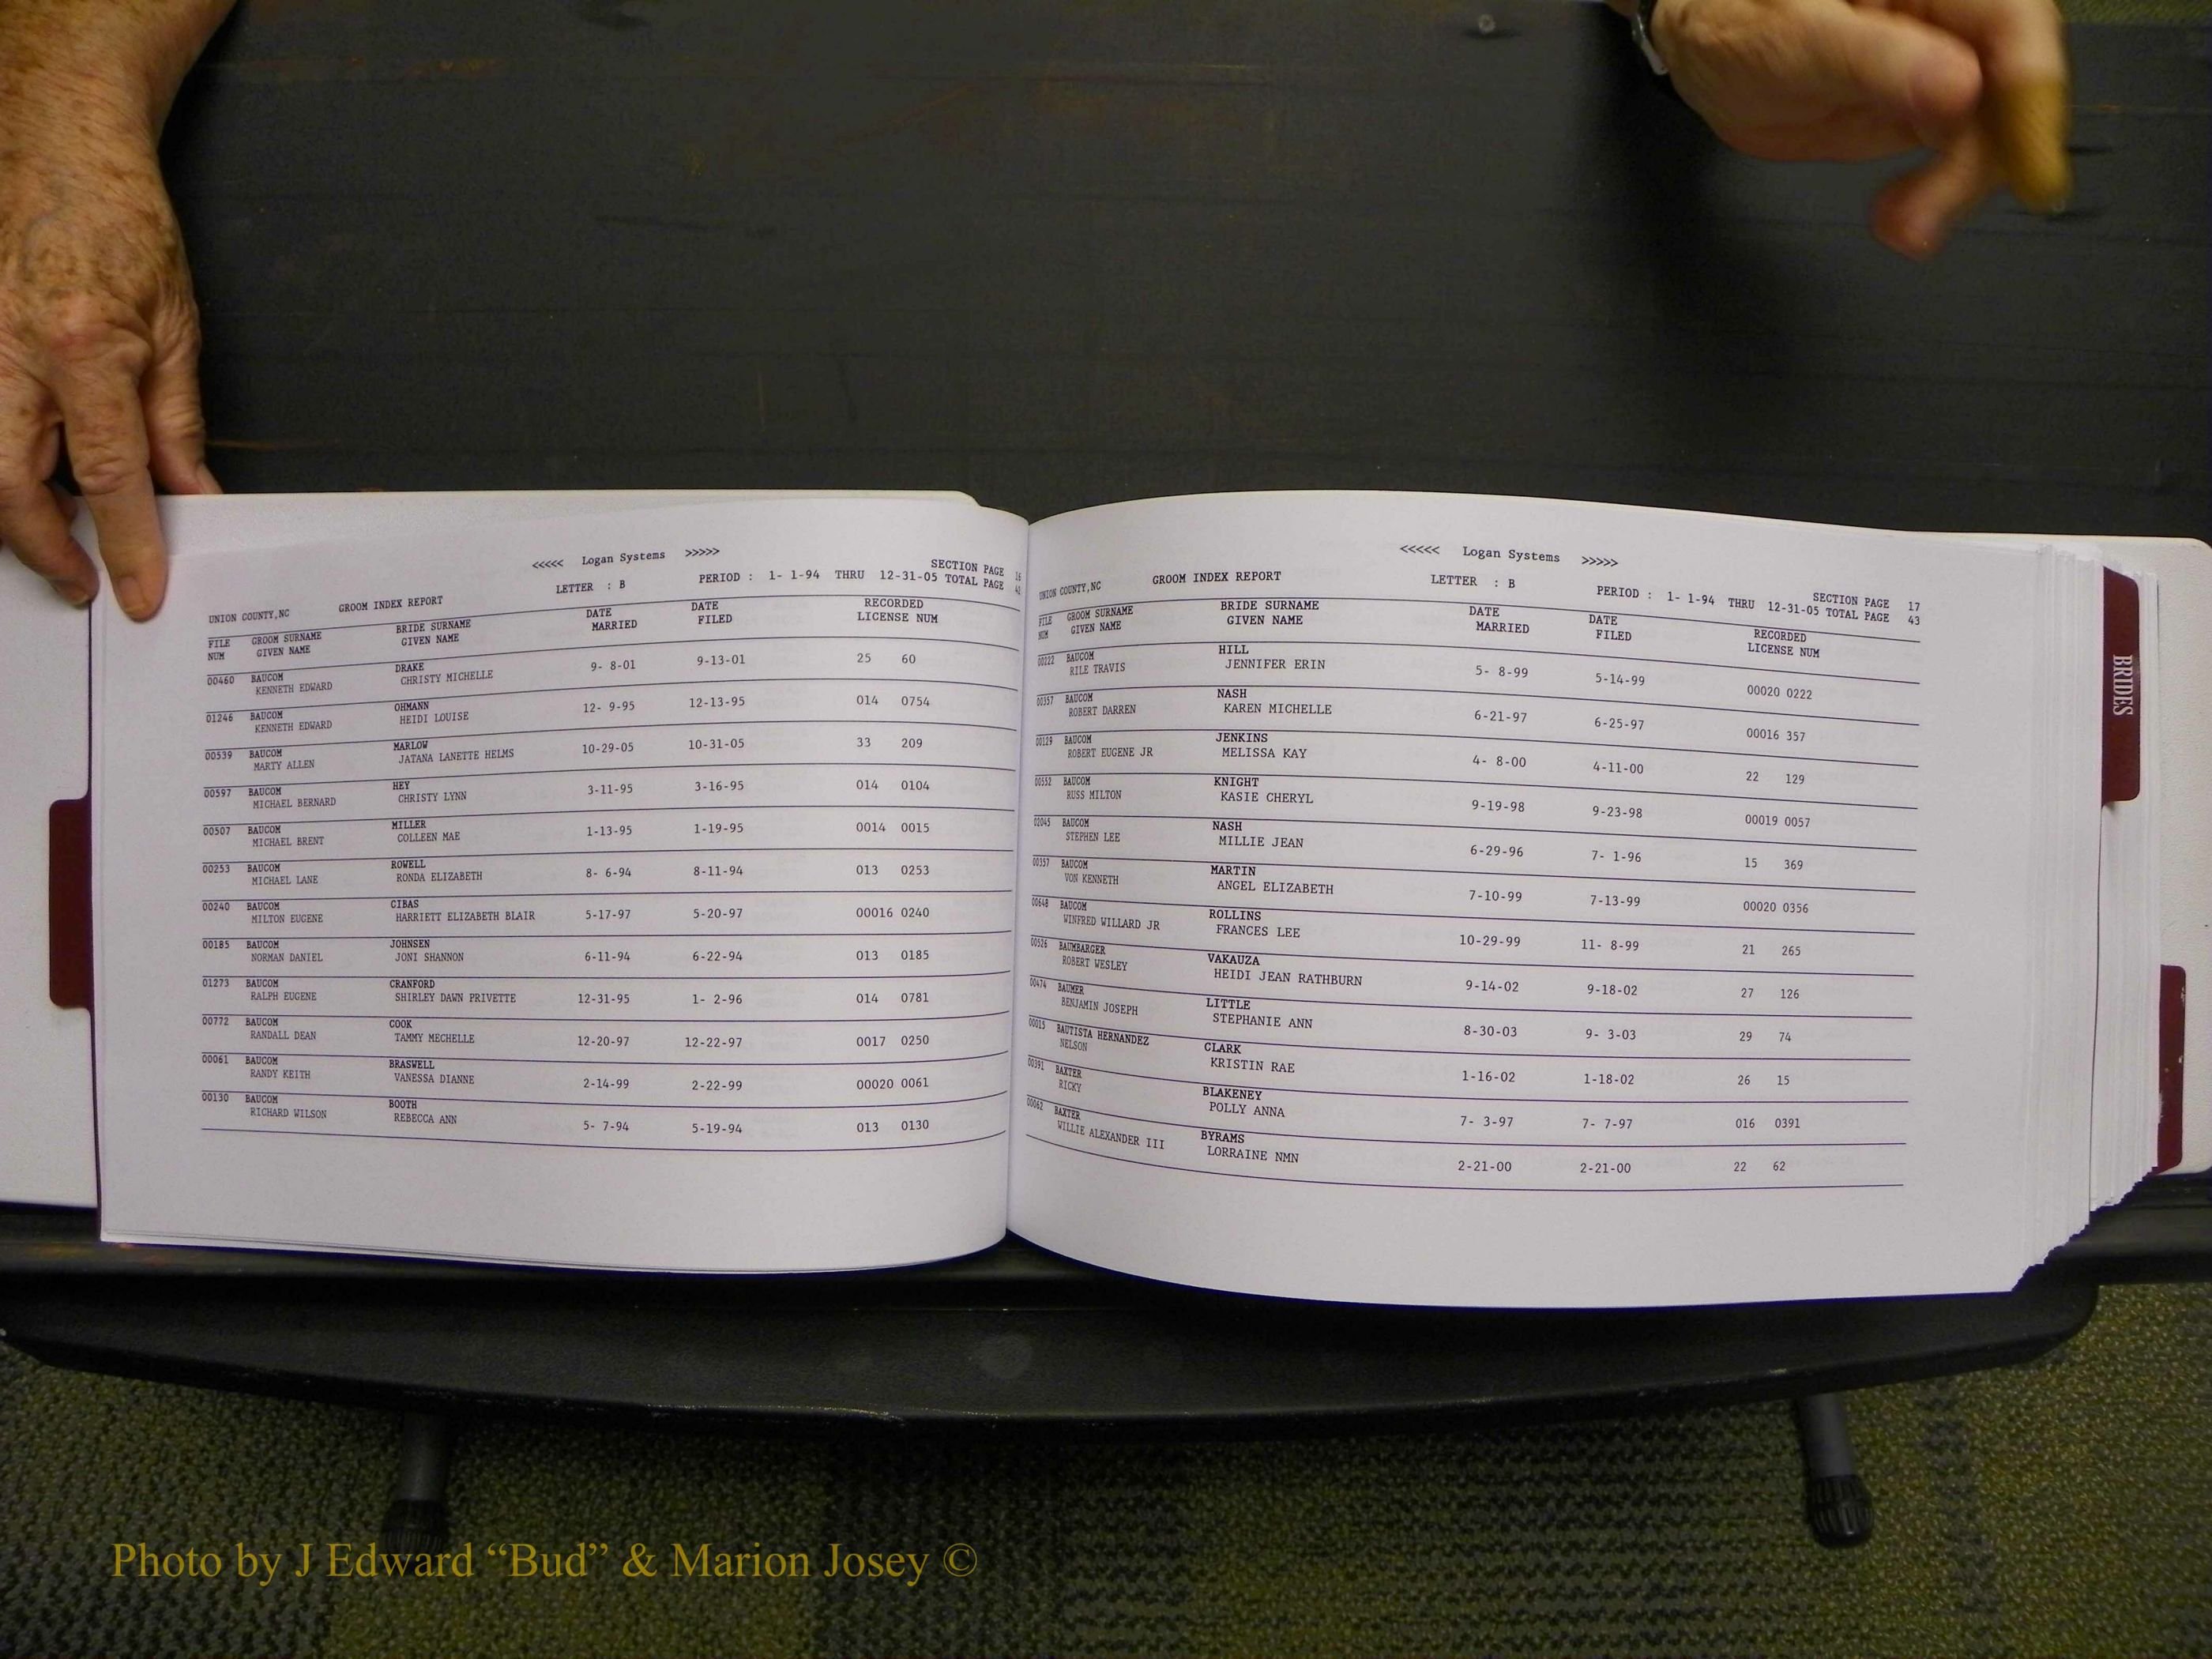 <<<<< Logan Systems >>>>>
SECTION PAGE 16
UNION COUNTY,NC GROOM INDEX REPORT LETTER : B PERIOD : 1- 1-94 THRU 12-31-05 TOTAL PAGE 42
FILE GROOM SURNAME BRIDE SURNAME DATE DATE RECORDED
NUM GIVEN NAME GIVEN NAME MARRIED FILED LICENSE NUM
00460 BAUCOM DRAKE 9- 8-01 9-13-01 25 60
KENNETH EDWARD CHRISTY MICHELLE
01246 BAUCOM OHMANN 12- 9-95 12-13-95 014 0754
KENNETH EDWARD HEIDI LOUISE
00539 BAUCOM MARLOW 10-29-05 10-31-05 33 209
MARTY ALLEN JATANA LANETTE HELMS
00597 BAUCOM HEY 3-11-95 3-16-95 014 0104
MICHAEL BERNARD CHRISTY LYNN
00507 BAUCOM MILLER 1-13-95 1-19-95 0014 0015
MICHAEL BRENT COLLEEN MAE
00253 BAUCOM ROWELL 8- 6-94 8-11-94 013 0253
MICHAEL LANE RONDA ELIZABETH
00240 BAUCOM CIBAS 5-17-97 5-20-97 00016 0240
MILTON EUGENE HARRIETT ELIZABETH BLAIR
00185 BAUCOM JOHNSEN 6-11-94 6-22-94 013 0185
NORMAN DANIEL JONI SHANNON
01273 BAUCOM CRANFORD 12-31-95 1- 2-96 014 0781
RALPH EUGENE SHIRLEY DAWN PRIVETTE
00772 BAUCOM COOK 12-20-97 12-22-97 0017 0250
RANDALL DEAN TAMMY MECHELLE
00061 BAUCOM BRASWELL 2-14-99 2-22-99 00020 0061
RANDY KEITH VANESSA DIANNE
00130 BAUCOM BOOTH 5- 7-94 5-19-94 013 0130
RICHARD WILSON REBECCA ANN
<<<<< Logan Systems >>>>>
SECTION PAGE 17
UNION COUNTY,NC GROOM INDEX REPORT LETTER : B PERIOD : 1- 1-94 THRU 12-31-05 TOTAL PAGE 43
FILE GROOM SURNAME BRIDE SURNAME DATE DATE RECORDED
NUM GIVEN NAME GIVEN NAME MARRIED FILED LICENSE NUM
00222 BAUCOM HILL 5- 8-99 5-14-99 00020 0222
RILE TRAVIS JENNIFER ERIN
00357 BAUCOM NASH 6-21-97 6-25-97 00016 357
ROBERT DARREN KAREN MICHELLE
00129 BAUCOM JENKINS 4- 8-00 4-11-00 22 129
ROBERT EUGENE JR MELISSA KAY
00552 BAUCOM KNIGHT 9-19-98 9-23-98 00019 0057
RUSS MILTON KASIE CHERYL
02045 BAUCOM NASH 6-29-96 7- 1-96 15 369
STEPHEN LEE MILLIE JEAN
00357 BAUCOM MARTIN 7-10-99 7-13-99 00020 0356
VON KENNETH ANGEL ELIZABETH
00648 BAUCOM ROLLINS 10-29-99 11- 8-99 21 265
WINFRED WILLARD JR FRANCES LEE
00526 BAUMBARGER VAKAUZA 9-14-02 9-18-02 27 126
ROBERT WESLEY HEIDI JEAN RATHBURN
00474 BAUMER LITTLE 8-30-03 9- 3-03 29 74
BENJAMIN JOSEPH STEPHANIE ANN
00015 BAUTISTA HERNANDEZ CLARK 1-16-02 1-18-02 26 15
NELSON KRISTIN RAE
00391 BAXTER BLAKENEY 7- 3-97 7- 7-97 016 0391
RICKY POLLY ANNA
00062 BAXTER BYRAMS 2-21-00 2-21-00 22 62
WILLIE ALEXANDER III LORRAINE NMN
BRIDES
Photo by J Edward “Bud” & Marion Josey ©